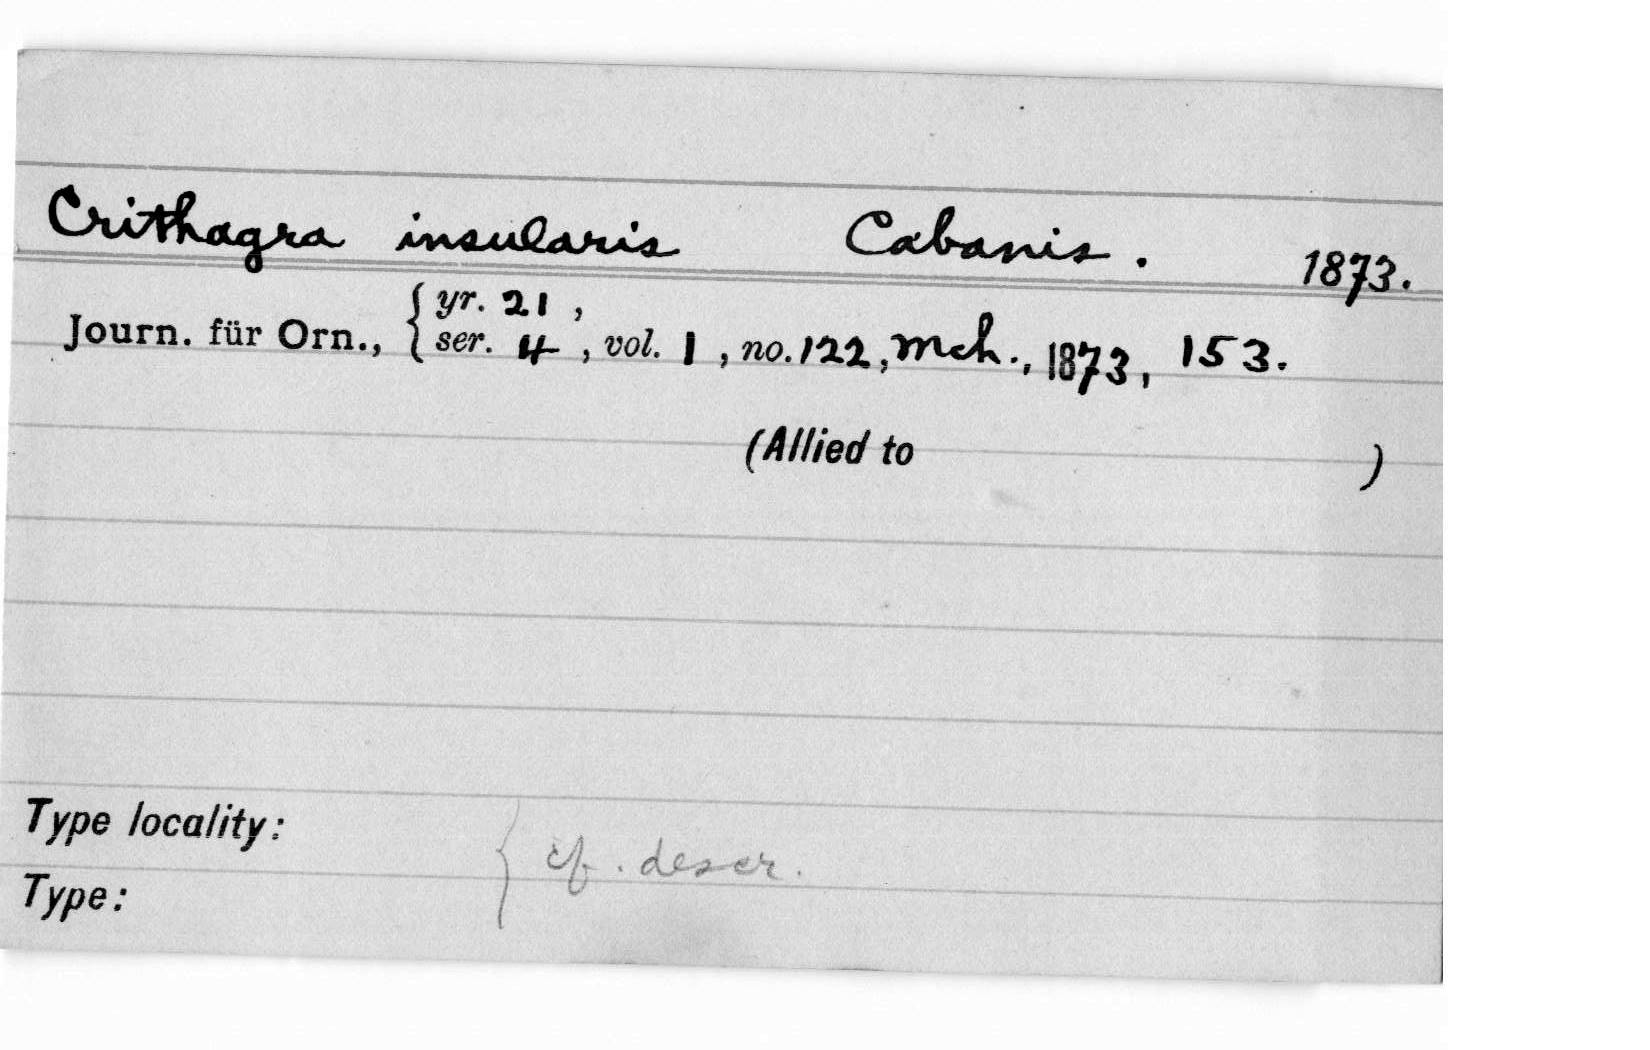 Crithagra insularis Cabanis. 1873.
Journ. für Orn., { yr. 21, ser. 4, vol. 1, no. 122, Mch., 1873, 153.
(Allied to )
Type locality:
{ cf. descr.
Type: